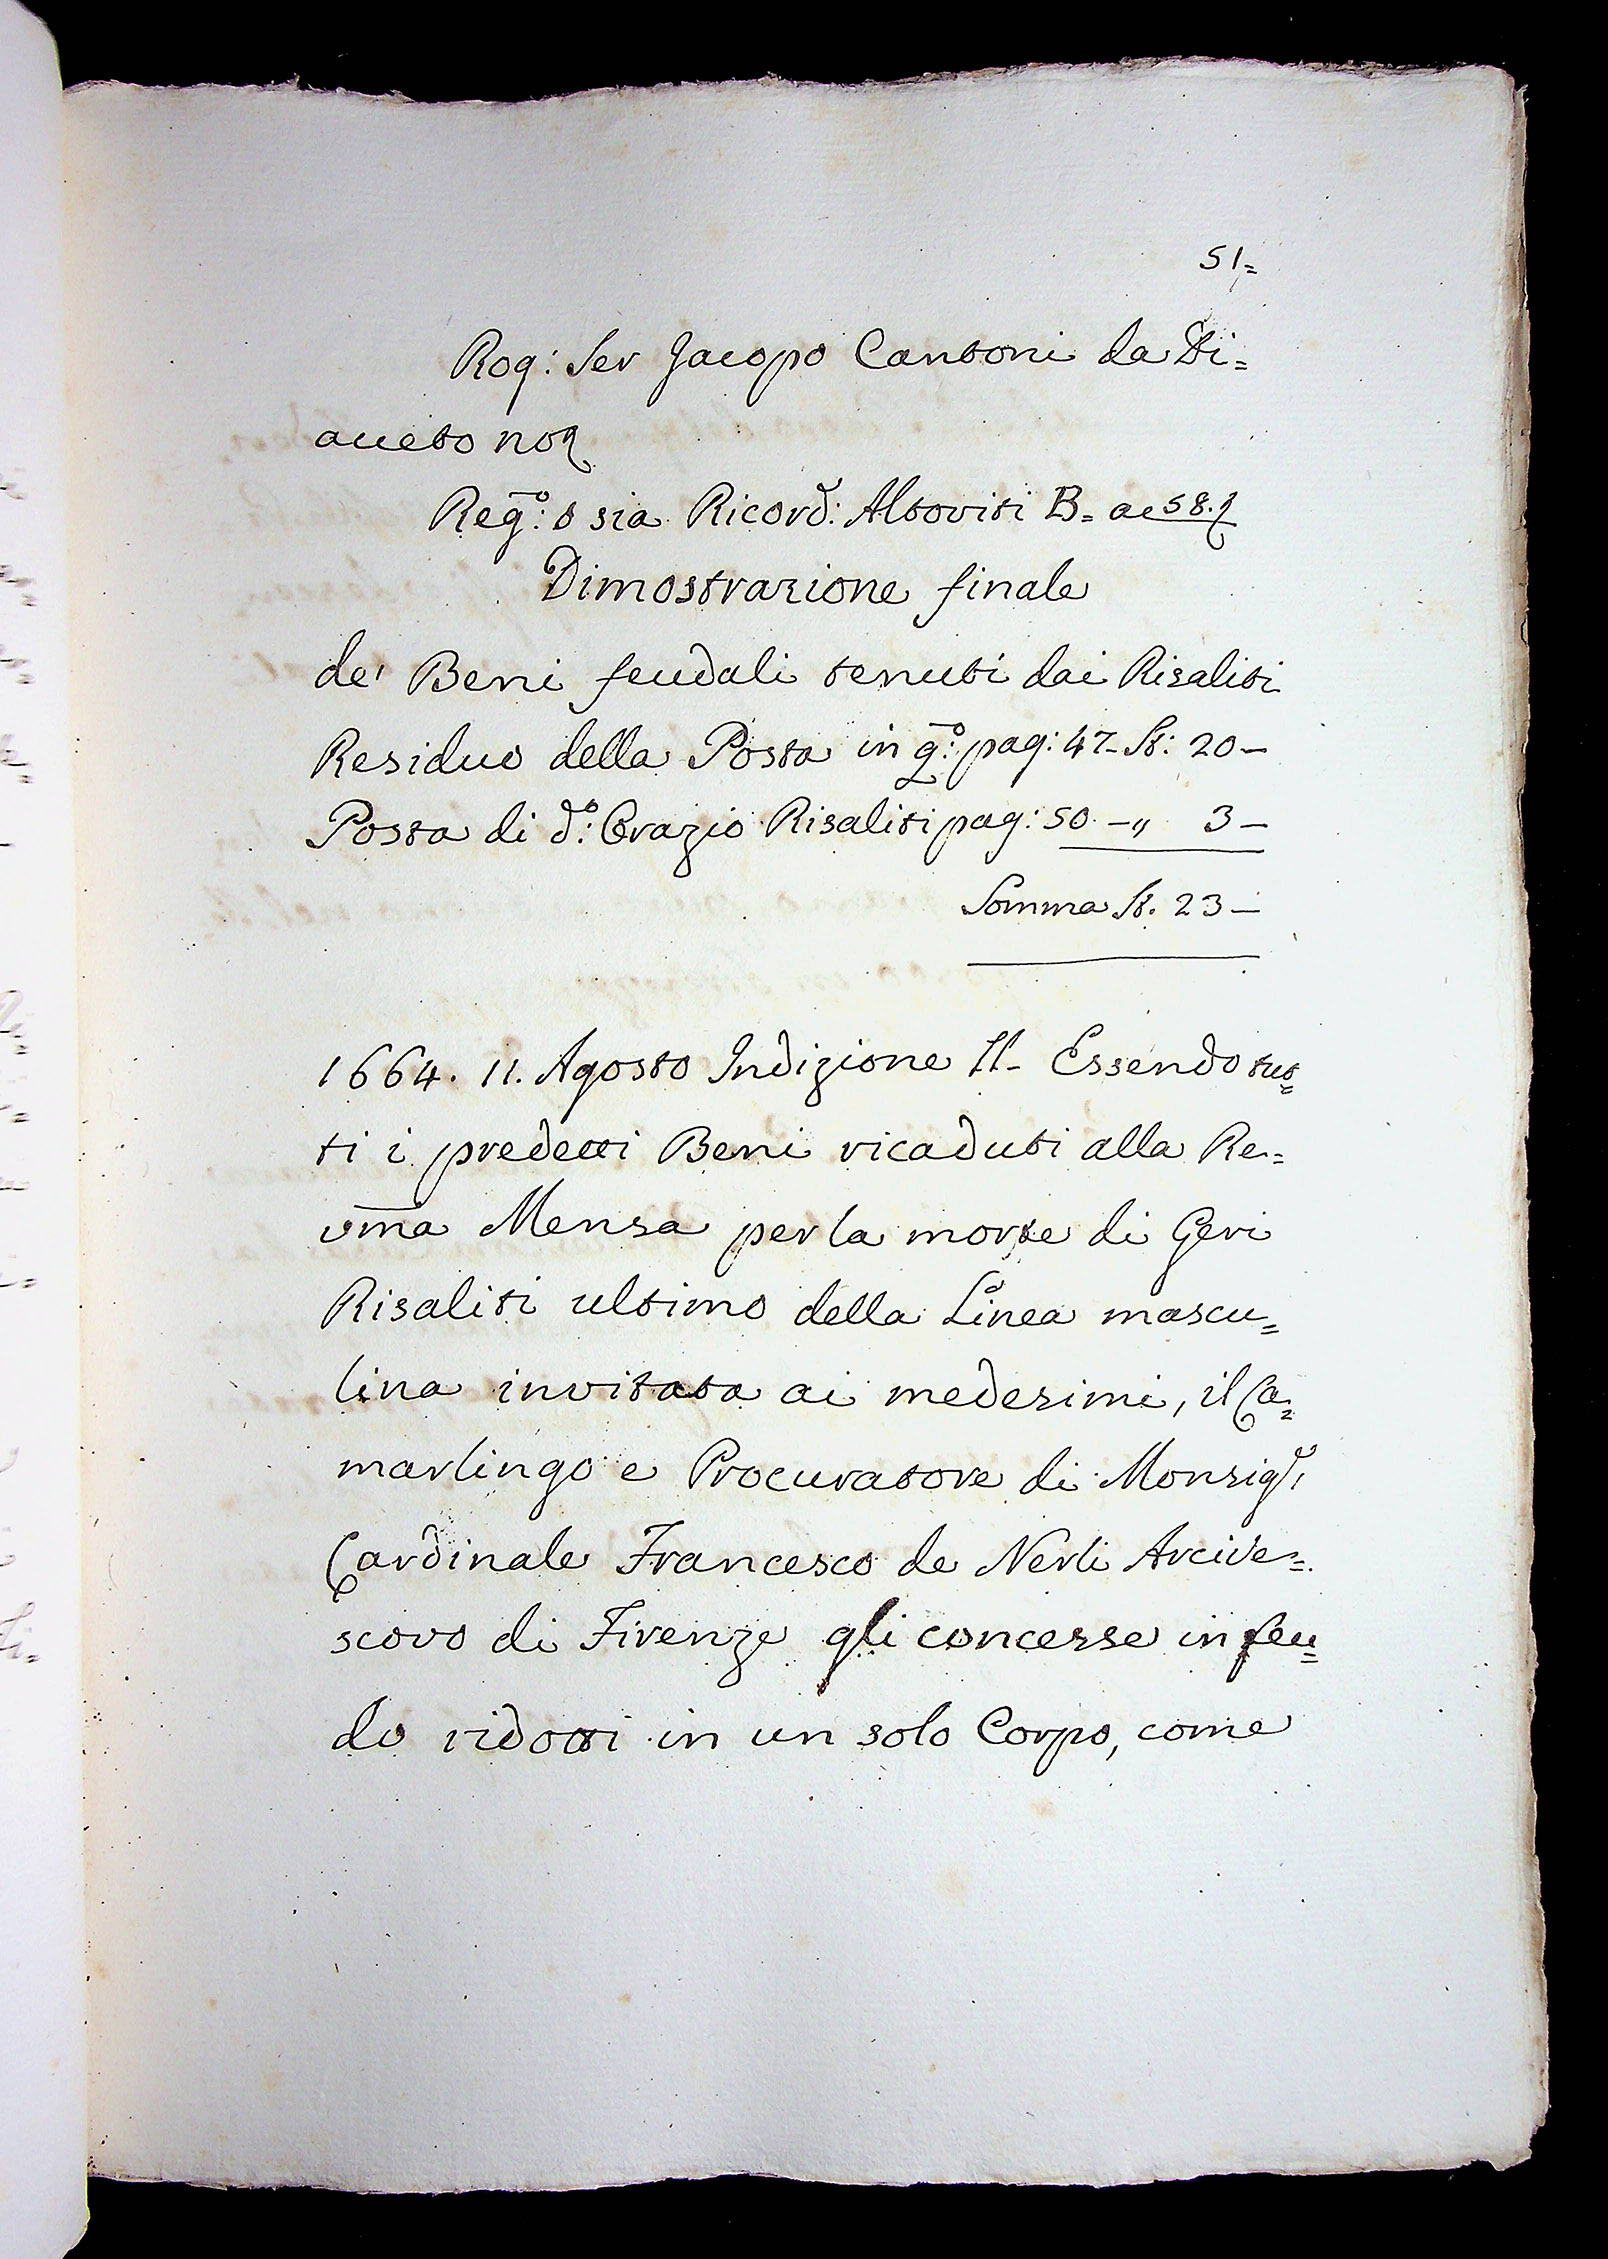 51=
Rog: Ser Jacopo Cantoni da Di=
aceto not
Reg:º o sia Ricord: Altoviti B= a 58.
Dimostrazione finale
de' Beni feudali tenuti dai Risaliti
Residuo della Posta in q:º pag: 47- St: 20-
Posta di d:º Orazio Risaliti pag: 50 - " 3-
Somma St. 23-
1664. 11. Agosto Indizione II- Essendo tut=
ti i predetti Beni ricaduti alla Re=
vma Mensa per la morte di Geri
Risaliti ultimo della Linea mascu=
lina invitata ai medesimi, il Ca=
marlingo e Procuratore di Monsigr
Cardinale Francesco de Nerli Arcive=
scovo di Firenze gli concesse in feu=
do ridotti in un solo Corpo, come